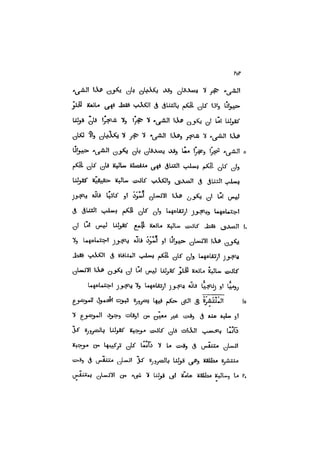 ٢٥٣
الشىء حجر لا يصدقان وقد يكذبان بان يكون هذا الشىء
حيوانًا واذا كان الحكم بالتنافى فى الكذب فقط فهى مانعة الخلوّ
كقولنا امّا ان يكون هذا الشىء لا حجرًا ولا شاجرًا فانّ قولنا
هذا الشىء لا شاجر وهذا الشىء لا حجر لا يكذبان والّا لكان
٥ الشىء شجرًا وحجرًا معًا وقد يصدقان بان يكون الشىء حيوانًا
وان كان الحكم بسلب التنافى فهى منفصلة سالبة فان كان الحكم
بسلب التنافى فى الصدق والكذب كانت سالبة حقيقيّة كقولنا
ليس امّا ان يكون هذا الانسان أَسْوَدَ او كاتبًا فانّه يجوز
اجتماعهما ويجوز ارتفاعهما وان كان الحكم بسلب التنافى فى
١٠ الصدق فقط كانت سالبة مانعة الجمع كقولنا ليس امّا ان
يكون هذا الانسان حيوانًا او أَسْوَدَ فانّه يجوز اجتماعهما ولا
يجوز ارتفاعهما وان كان الحكم بسلب المنافاة فى الكذب فقط
كانت سالبة مانعة الخلوّ كقولنا ليس امّا ان يكون هذا الانسان
روميًّا او زنجيًّا فانّه يجوز ارتفاعهما ولا يجوز اجتماعهما
١٥ المُنْتَشِرَة هى التى حكم فيها بضرورة ثبوت المحمول للموضوع
او سلبه عنه فى وقت غير معيّن من اوقات وجود الموضوع لا
دائمًا بحسب الذات فان كانت موجبة كقولنا بالضرورة كلّ
انسان متنفّس فى وقت ما لا دائمًا كان تركيبها من موجبة
منتشرة مطلقة وهى قولنا بالضرورة كلّ انسان متنفّس فى وقت
٢٠ ما وسالبة مطلقة عامّة اى قولنا لا شىء من الانسان بمتنفّس